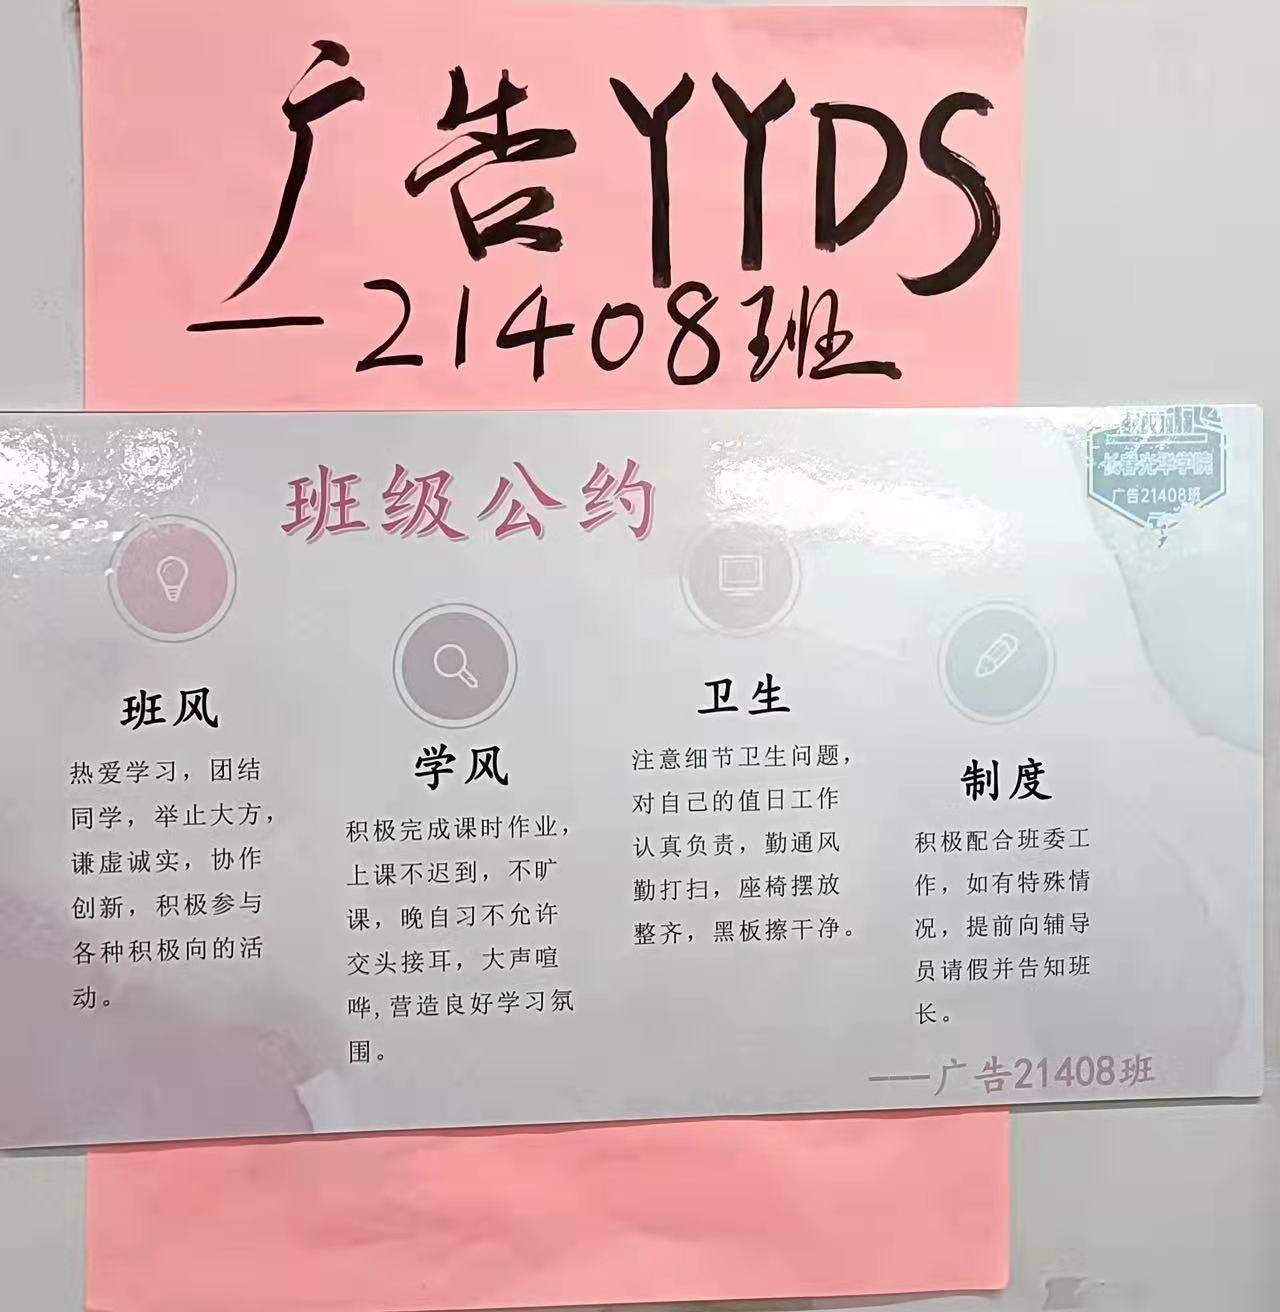 广告YYDS
—21408班
班级公约
长春光华学院
广告21408班
班风
热爱学习，团结
同学，举止大方，
谦虚诚实，协作
创新，积极参与
各种积极向的活
动。
学风
积极完成课时作业，
上课不迟到，不旷
课，晚自习不允许
交头接耳，大声喧
哗，营造良好学习氛
围。
卫生
注意细节卫生问题，
对自己的值日工作
认真负责，勤通风
勤打扫，座椅摆放
整齐，黑板擦干净。
制度
积极配合班委工
作，如有特殊情
况，提前向辅导
员请假并告知班
长。
---广告21408班